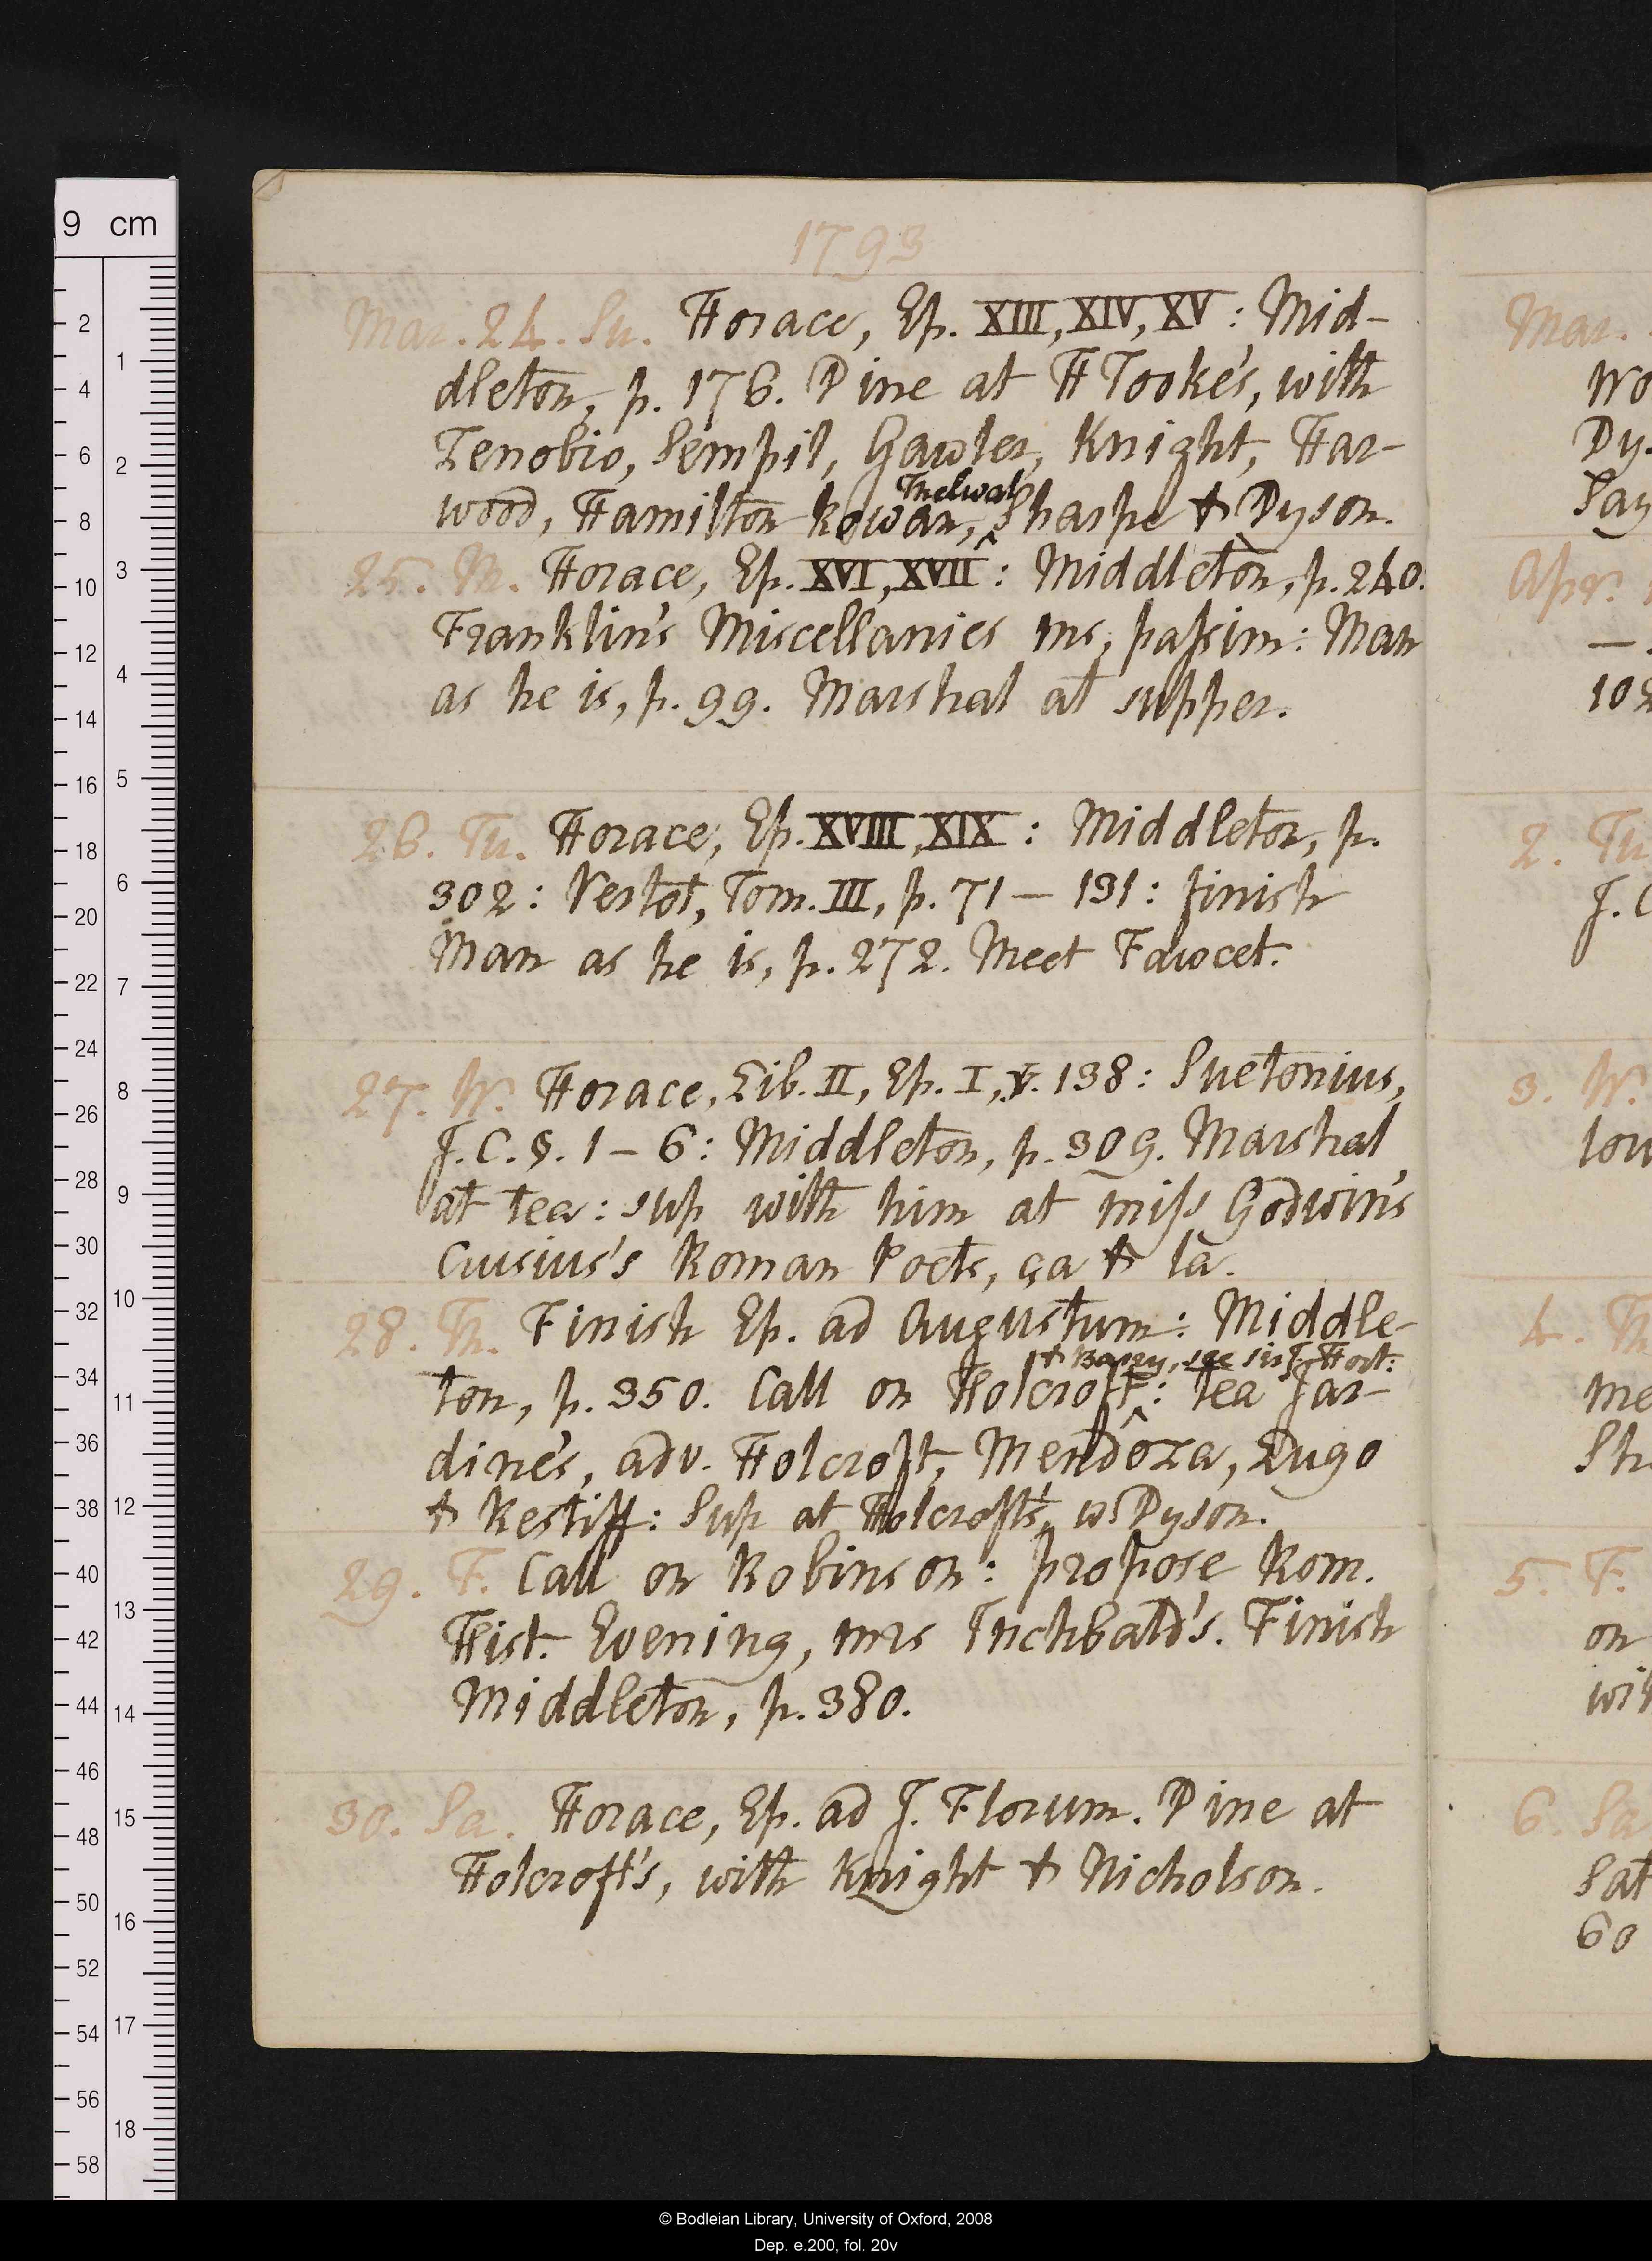 1793
Mar. 24. Su. Horace, Ep. XIII, XIV, XV: Mid-
dleton, p. 176. Dine at H Tooke's, with
Zenobio, Sempil, Gawler, Knight, Har-
wood, Hamilton Rowan, Thelwal, Sharpe & Dyson.
25. M. Horace, Ep. XVI, XVII: Middleton, p. 240.
Franklin's Miscellanies ms, paſsim: Man
as he is, p. 99. Marshal at supper.
26. Tu. Horace, Ep. XVIII, XIX: Middleton, p.
302: Vertot, Tom. III, p. 71 — 131: finish
Man as he is, p. 272. Meet Fawcet.
27. W. Horace, Lib. II, Ep. I, v. 138: Suetonius,
J. C. §. 1 – 6: Middleton, p. 309. Marshal
at tea: sup with him at miſs Godwin's
Crusius's Roman Poets, ça & la.
28. Th. Finish Ep. ad Augustum: Middle-
ton, p. 350. Call on Holcroft & Barry, see sis J. Hort: : tea Jar-
dine's, adv. Holcroft, Mendoza, Lugo
& Restiff: Sup at Holcroft's, w. Dyson.
29. F. Call on Robinson: propose Rom.
Hist. Evening, mrs Inchbald's. Finish
Middleton, p. 380.
30. Sa. Horace, Ep. ad J. Florum. Dine at
Holcroft's, with Knight & Nicholson.
Mar.
Wo
Dy.
Say
Apr.
—
102
2. Tu
J. C
3. W.
lou
4. Th
me
Sh
5. F.
on
wit
6. Sa
Sat
60
9 cm
2
4
6
8
10
12
14
16
18
20
22
24
26
28
30
32
34
36
38
40
42
44
46
48
50
52
54
56
58
1
2
3
4
5
6
7
8
9
10
11
12
13
14
15
16
17
18
© Bodleian Library, University of Oxford, 2008
Dep. e.200, fol. 20v